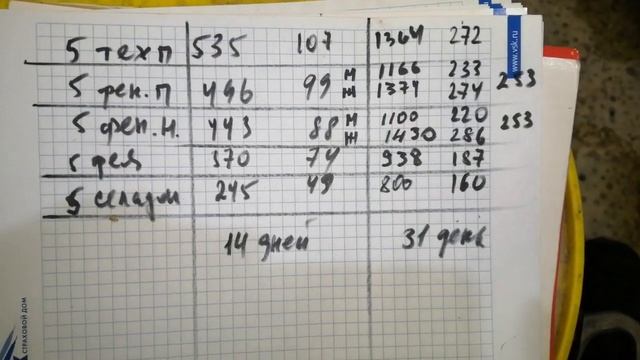 5 техп 535 107 1364 272
м 1166 233
5 фен.п 496 99 ж 1374 274 253
м 1100 220
5 фен.н. 443 88 ж 1430 286 253
5 фея 370 74 938 187
5 245 49 800 160
14 дней 31 день
www.vsk.ru
СТРАХОВОЙ ДОМ